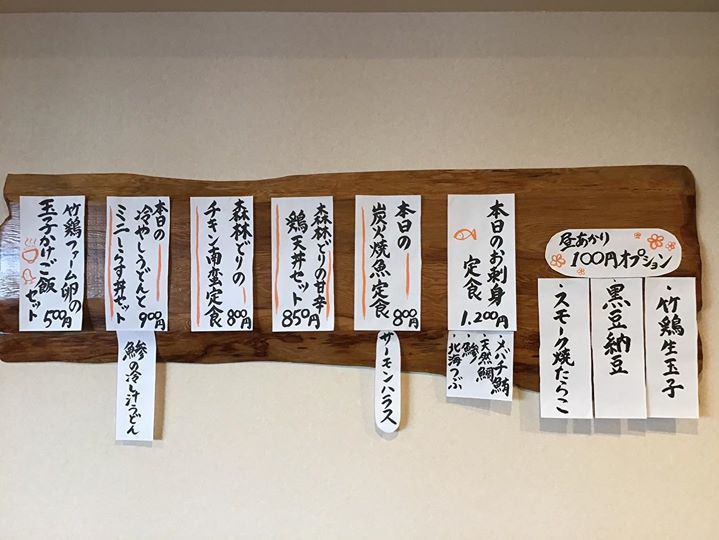 昼あかり
100円オプション
・竹鶏生玉子
黒豆納豆
・スモーク焼たらこ
本日のお刺身
定食
1,200円
・メバチ鮪
・天然鯛
・鯵
・北海つぶ
本日の
炭火焼魚定食
800円
サーモンハラス
森林どりの甘辛
鶏天丼セット
850円
森林どりの
チキン南蛮定食
800円
本日の
冷やしうどんと
ミニしらす丼セット
900円
鯵の冷し汁うどん
竹鶏ファーム卵の
玉子かけご飯
セット
500円